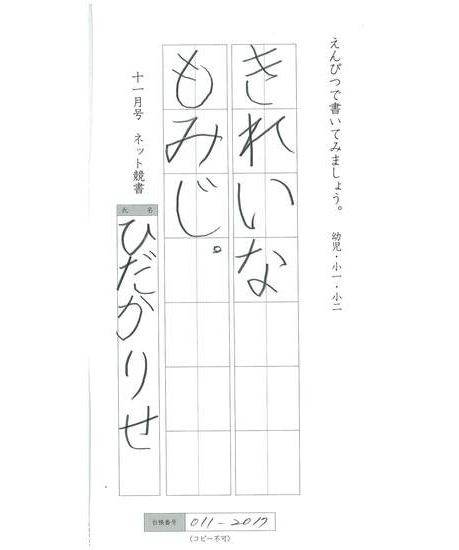 えんぴつで書いてみましょう。 幼児・小一・小二
きれいな
もみじ。
十一月号 ネット競書
氏名
ひだかりせ
台帳番号 011-2017
(コピー不可)